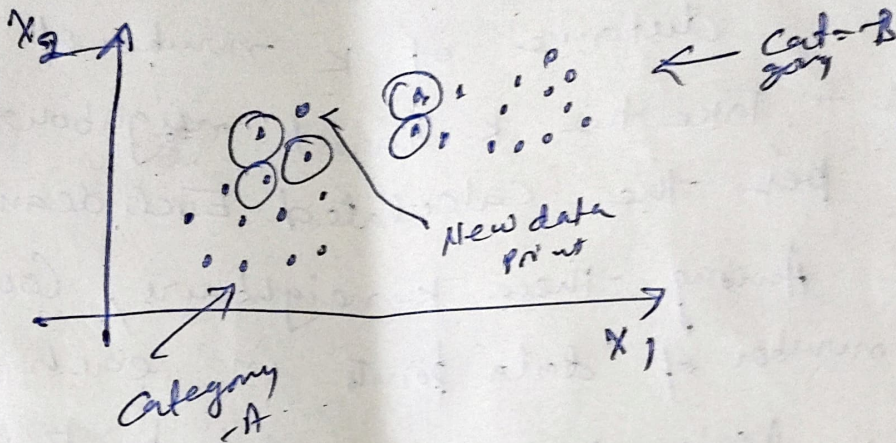 X2
Cat=B
gory
New data
Point
X1
Category
-A